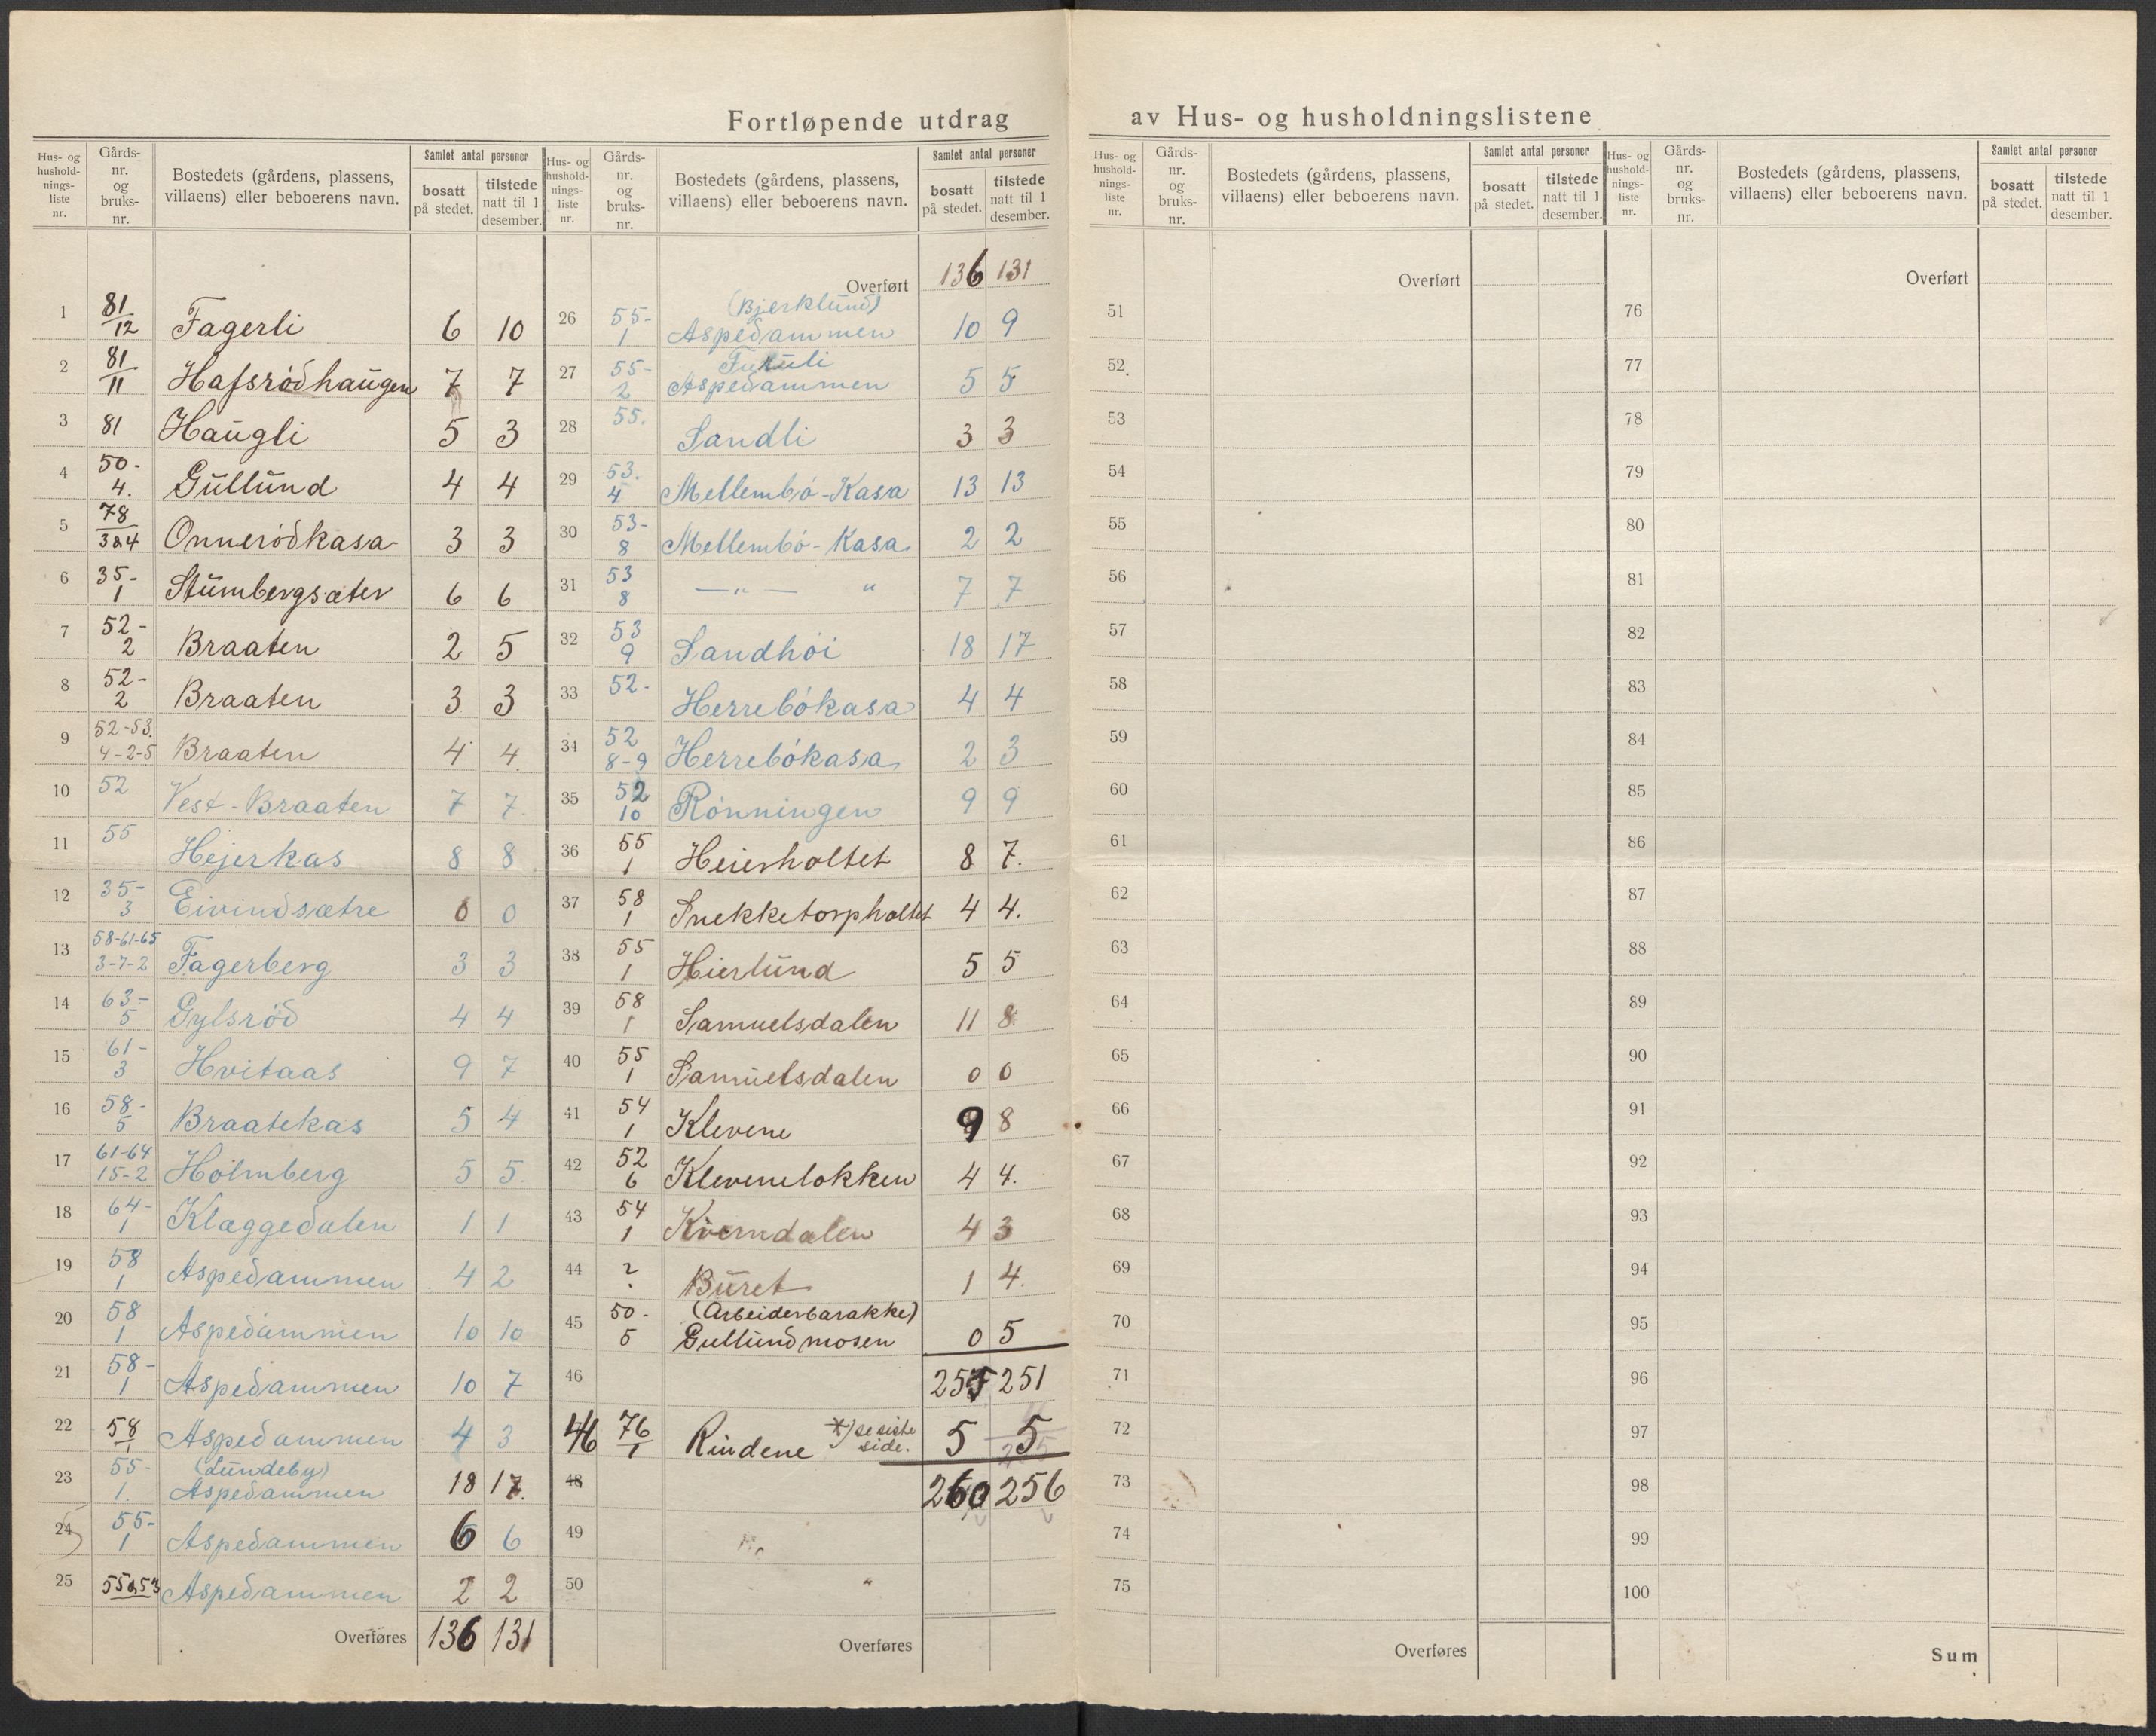 Fortløpende utdrag av Hus- og husholdningslistene
Hus- og husholdningsliste nr. | Gårds-nr. og bruks-nr. | Bostedets (gårdens, plassens, villaens) eller beboerens navn. | Samlet antal personer | bosatt på stedet. | tilstede natt til 1 desember.
1 81/12 Fagerli 6 10
2 81/11 Hafsrödhaugen 7 7
3 81 Haugli 5 3
4 50-4. Gullund 4 4
5 78/3&4 Onnerödkasa 3 3
6 35-1 Stumbergsæter 6 6
7 52-2 Braaten 2 5
8 52-2 Braaten 3 3
9 52-53. 4-2-5 Braaten 4 4.
10 52 Vest-Braaten 7 7.
11 55 Hejerkas 8 8
12 35-3 Eivindsætre 0 0
13 58-61-65 3-7-2 Fagerberg 3 3
14 63-5 Gylsröd 4 4
15 61-3 Hvitaas 9 7
16 58-5 Braatekas 5 4
17 61-64 15-2 Holmberg 5 5.
18 64-1 Klæggedalen 1 1
19 58 1 Aspedammen 4 2
20 58 1 Aspedammen 10 10
21 58-1 Aspedammen 10 7
22 58/1 Aspedammen 4 3
23 55-1. (Lundeby) Aspedammen 18 17.
24 55-1 Aspedammen 6 6
25 55&53 Aspedammen 2 2
Overføres 136 131
Hus- og husholdningsliste nr. | Gårds-nr. og bruks-nr. | Bostedets (gårdens, plassens, villaens) eller beboerens navn. | Samlet antal personer | bosatt på stedet. | tilstede natt til 1 desember.
Overført 136 131
26 55-1 (Bjerklund) Aspedammen 10 9
27 55-2 Furuli Aspedammen 5 5
28 55. Sandli 3 3
29 53. 4 Mellembö-Kasa 13 13
30 53-8 Mellembö-Kasa 2 2
31 53 8 —"— " 7 7
32 53 9 Sandhöi 18 17
33 52- Herrebökasa 4 4
34 52 8-9 Herrebökasa 2 3
35 52 10 Rönningen 9 9
36 55 1 Heierholtet 8 7.
37 58 1 Snekketorpholtet 4 4.
38 55 1 Hierlund 5 5
39 58 1 Samuelsdalen 11 8
40 55 1 Samuelsdalen 0 0
41 54 1 Klevene 9 8
42 52 6 Klevenelökken 4 4.
43 54 1 Kverndalen 4 3
44 ? Buret 1 4.
45 50-5 (Arbeiderbarakke) Gullundmosen 0 5
46 257 251
46 76/1 Rindene *) se siste side. 5 5
48 260 256
49
50
Overføres
Hus- og husholdningsliste nr. | Gårds-nr. og bruks-nr. | Bostedets (gårdens, plassens, villaens) eller beboerens navn. | Samlet antal personer | bosatt på stedet. | tilstede natt til 1 desember.
Overført
51
52
53
54
55
56
57
58
59
60
61
62
63
64
65
66
67
68
69
70
71
72
73
74
75
Overføres
Hus- og husholdningsliste nr. | Gårds-nr. og bruks-nr. | Bostedets (gårdens, plassens, villaens) eller beboerens navn. | Samlet antal personer | bosatt på stedet. | tilstede natt til 1 desember.
Overført
76
77
78
79
80
81
82
83
84
85
86
87
88
89
90
91
92
93
94
95
96
97
98
99
100
Sum